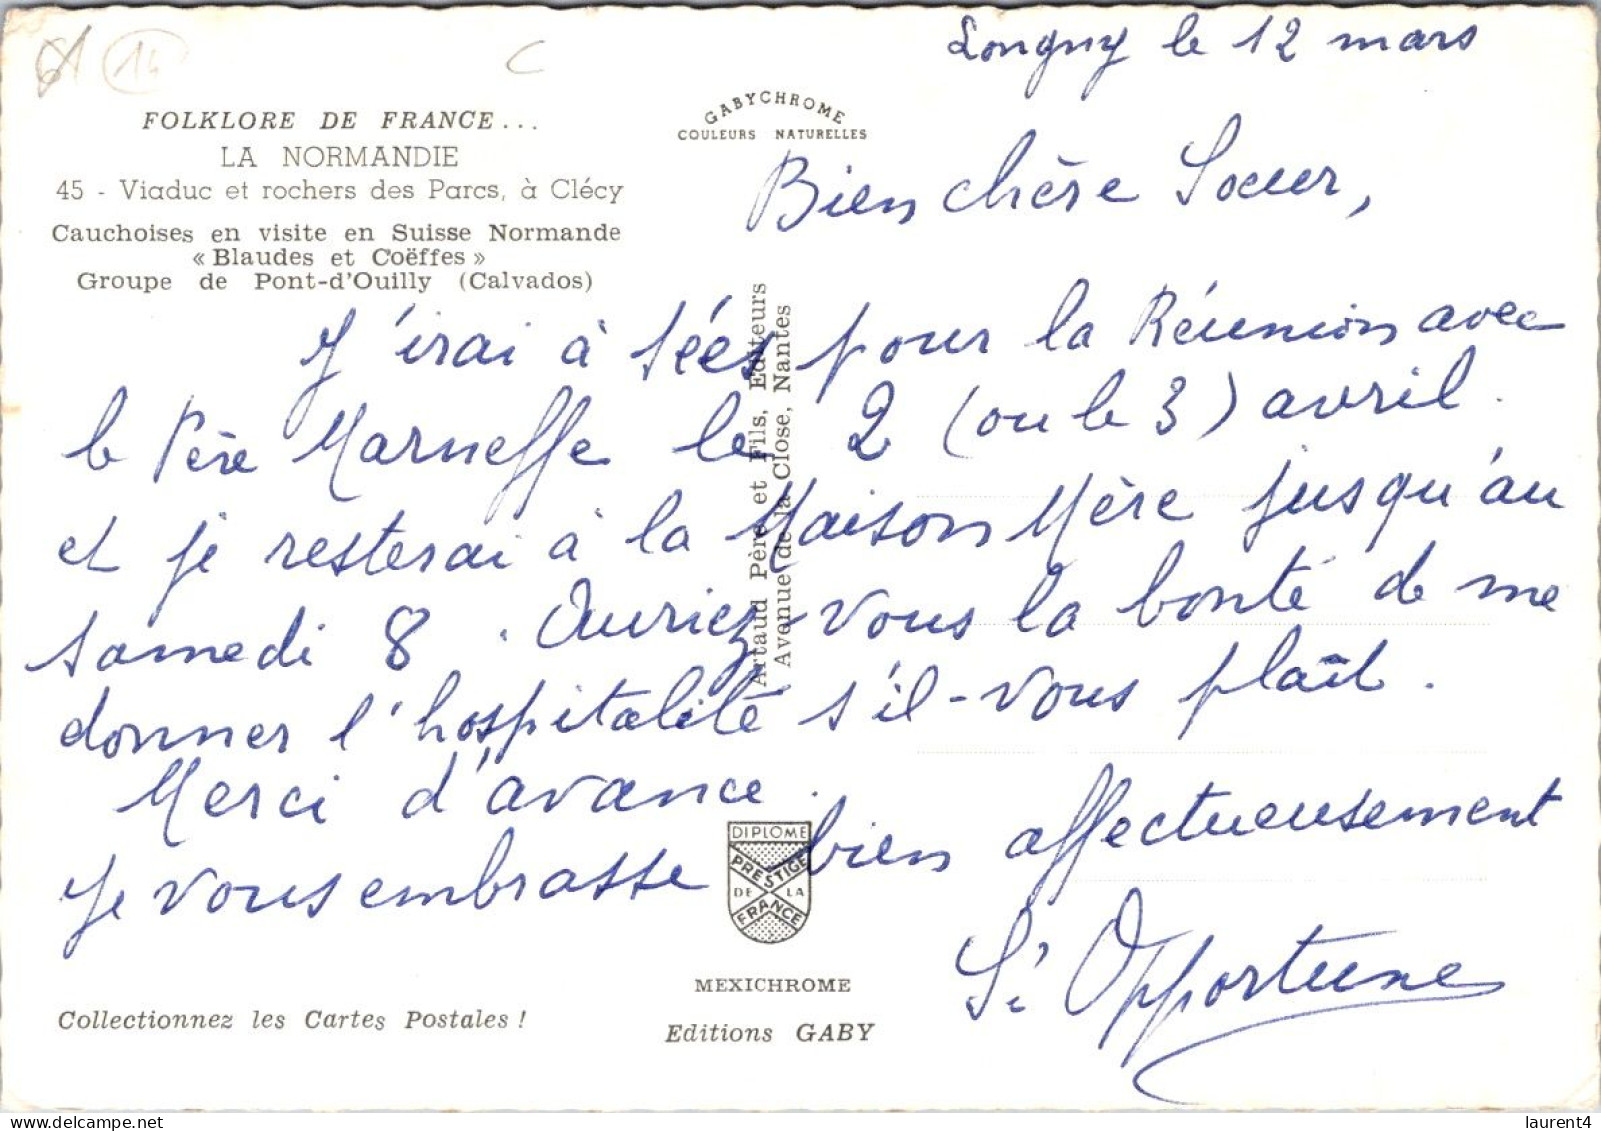 14
C
Longny le 12 mars
FOLKLORE DE FRANCE...
LA NORMANDIE
45 - Viaduc et rochers des Parcs, à Clécy
Cauchoises en visite en Suisse Normande
« Blaudes et Coëffes »
Groupe de Pont-d'Ouilly (Calvados)
GABYCHROME
COULEURS NATURELLES
Bien chère Soeur,
J'irai à Sées pour la Réunion avec
le Père Marneffe le 2 (ou le 3) avril.
et je resterai à la Maison Mère jusqu'au
samedi 8. Auriez-vous la bonté de me
donner l'hospitalité s'il-vous plaît.
Merci d'avance.
Je vous embrasse bien affectueusement
Sr Opportune
Artaud Père et Fils, Editeurs
Avenue de la Close, Nantes
DIPLOME
PRESTIGE
DE LA
FRANCE
MEXICHROME
Editions GABY
Collectionnez les Cartes Postales !
laurent4